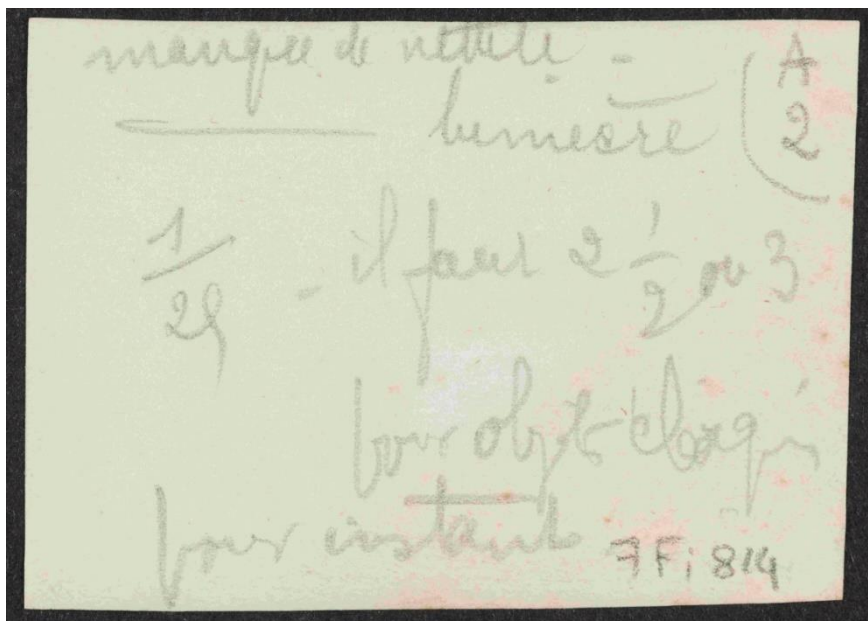 manque de netteté - (A
lumière 2
1/25 - il faut 2 1/2 ou 3
pour objets éloignés
pour instant
7 Fi 814